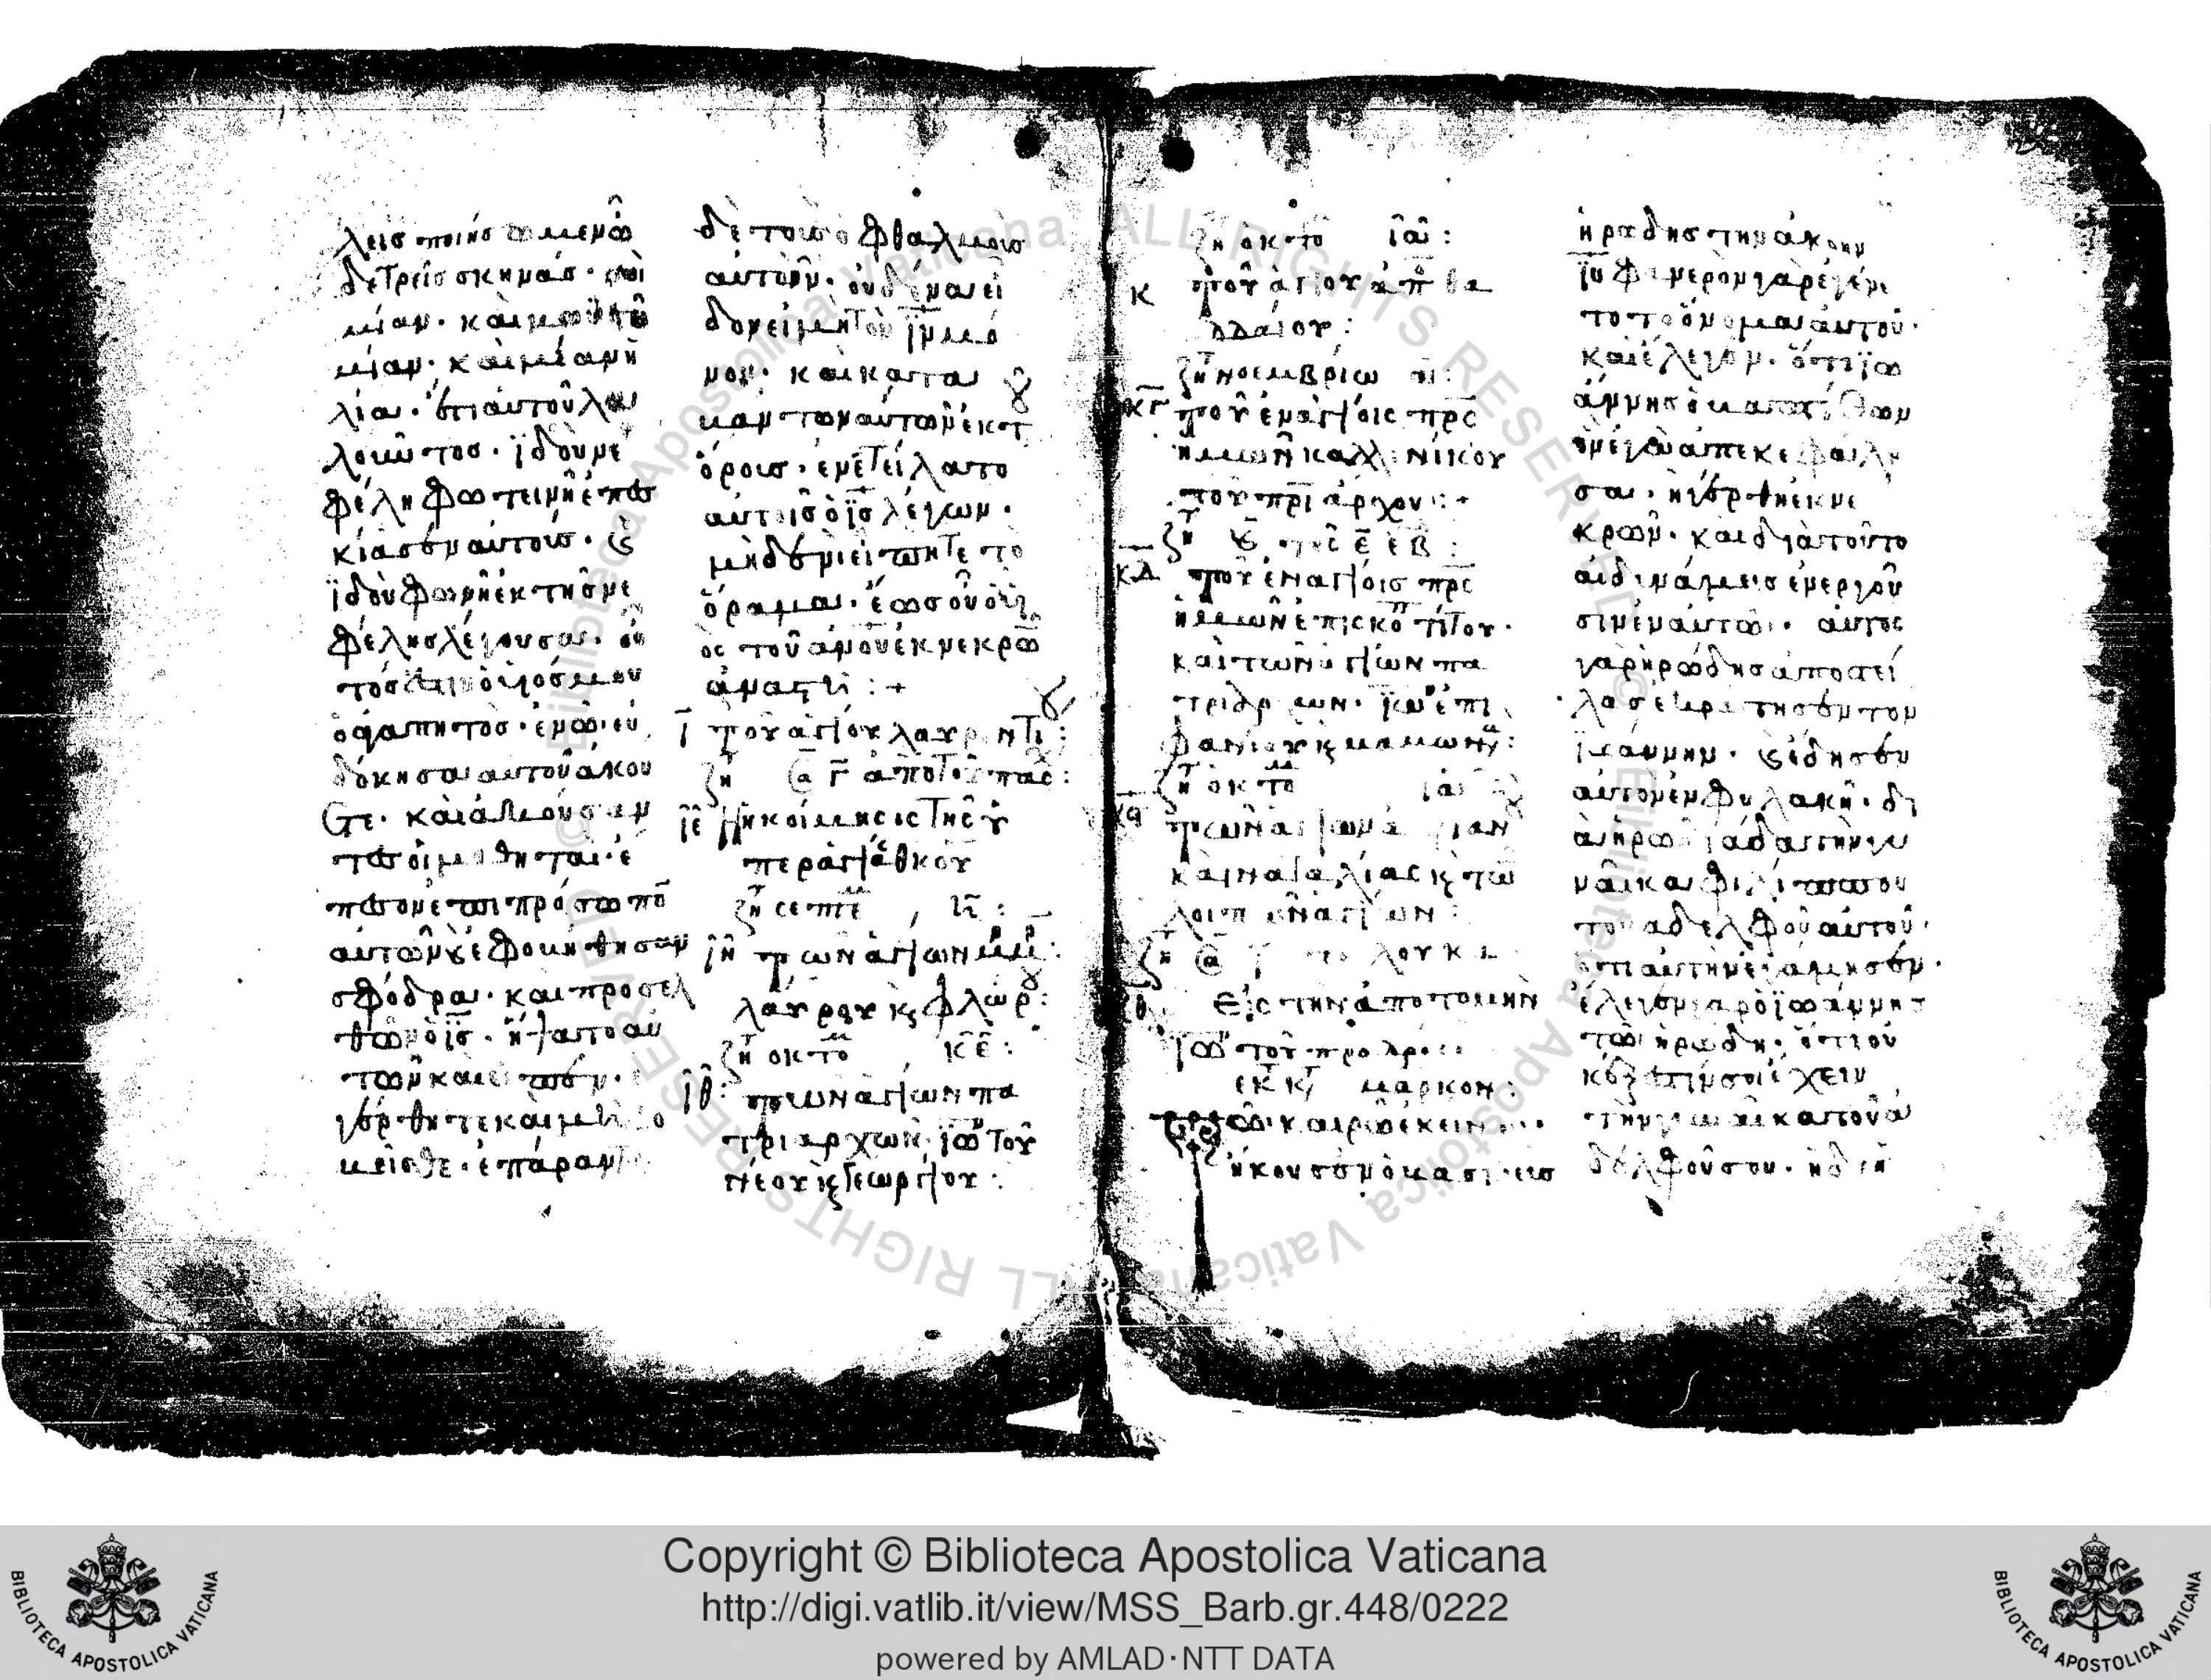 λεις ποιήσωμεν ὧ
δε τρεῖς σκηνάς· σοὶ
μίαν· καὶ μωϋσῆ
μίαν· καὶ μίαν ἡ
λία· ἔτι αὐτοῦ λα
λοῦντος· ϊδοὺ νε
φέλη φωτεινὴ ἐπε
κίασεν αὐτούς· καὶ
ϊδοὺ φωνὴ ἐκ τῆς νε
φέλης λέγουσα· οὗ
τός ἐστιν ὁ υἱός μου
ὁ ἀγαπητὸς· ἐν ὧ εὐ
δόκησα αὐτοῦ ἀκού
ετε· καὶ ἀκούσαν
τες οἱ μαθηταὶ· ἔ
πεσον ἐπὶ πρόσωπον
αὐτῶν καὶ ἐφοβήθησαν
σφόδρα· καὶ προσελ
θὼν ὁ ις· ἥψατο αὐ
τῶν καὶ εἶπεν· ἐ
γέρθητε καὶ μὴ φο
βεῖσθε· ἐπάραντες
δὲ τοὺς ὀφθαλμοὺς
αὐτῶν· οὐδένα εἶ
δον εἰ μὴ τὸν ιν μό
νον· καὶ κατα
βαν των αὐτῶν ἐκ τοῦ
ὄρους· ἐνετείλατο
αὐτοῖς ὁ ις λέγων·
μηδενὶ εἴπητε τὸ
ὅραμα· ἕως οὗ ὁ υἱ
ὸς τοῦ ανου ἐκ νεκρῶ
ἀναστῆ :+
ι τοῦ ἁγίου λαυρεντι :
ζη
ιε Η κοίμησις τῆς υ
περαγίας θκου
ζη σεπτε , η :
ιη τῶν ἁγίων μμ :
λαύρου κς φλώρ :
ζη οκτο , κε :
ιθ : τῶν ἁγίων πα
τριαρχῶν ιω τοῦ
νέου κς γεωργίου :
ζη οκτο ια :
κ τοῦ ἁγίου ἀπο θα
δδαίου :
ζη νοεμβρίω
κγ τοῦ ἐν ἁγίοις πρς
ἡμῶν καλλινίκου
τοῦ πριάρχου :+
ζη
κδ τοῦ ἐν ἁγίοις πρς
ἡμῶν ἐπισκό τίτου·
καὶ τῶν ἁγίων πα
τριαρχων· ιω ἐπι
φανίου κς μαμων :
ζη οκτο ια
κς τῶν ἁγίων ἀδριαν
καὶ ναταλίας κς τῶ
λοιπῶν ἁγίων :
ζη λουκα
κθ Εἰς τὴν ἀποτομὴν
ιω τοῦ προδρο
εκ τ κτ μάρκον :
τῶ καιρῶ ἐκείνω
ἤκουσεν ὁ βασιλεὺς
ἡρώδης τὴν ἀκοὴν
ιυ φανερὸν γὰρ ἐγένε
το τὸ ὄνομα αὐτοῦ·
καὶ ἔλεγον· ὅτι ϊω
άννης ὁ βαπτίζων
ὃν ἐγὼ ἀπεκεφάλι
σα· ἠγέρθη ἐκ νε
κρῶν· καὶ διὰ τοῦτο
αἱ δυνάμεις ἐνεργοῦ
σιν ἐν αὐτῶ· αὐτὸς
γὰρ ἡρώδης ἀποστεί
λας ἐκράτησεν τὸν
ϊωάννην· καὶ ἔδησεν
αὐτὸν ἐν φυλακῆ· δι
ὰ ἡρωδιάδα τὴν γυ
ναῖκα φιλίππου
τοῦ ἀδελφοῦ αὐτοῦ·
ὅτι αὐτὴν ἐγάμησεν·
ἔλεγεν γὰρ ὁ ϊωάννης
τῶ ἡρώδη· ὅτι οὐ
κ ἔξεστίν σοι ἔχειν
τὴν γυναῖκα τοῦ ἀ
δελφοῦ σου· ἡ δὲ ἡ
Copyright © Biblioteca Apostolica Vaticana
http://digi.vatlib.it/view/MSS_Barb.gr.448/0222
powered by AMLAD·NTT DATA
BIBLIOTECA APOSTOLICA VATICANA
BIBLIOTECA APOSTOLICA VATICANA